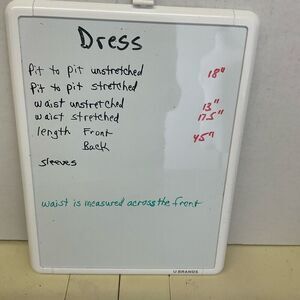 Dress
Pit to pit unstretched 18"
Pit to pit stretched
waist unstretched 13"
waist stretched 17.5"
length Front 45"
Back
sleeves
waist is measured across the front
U BRANDS